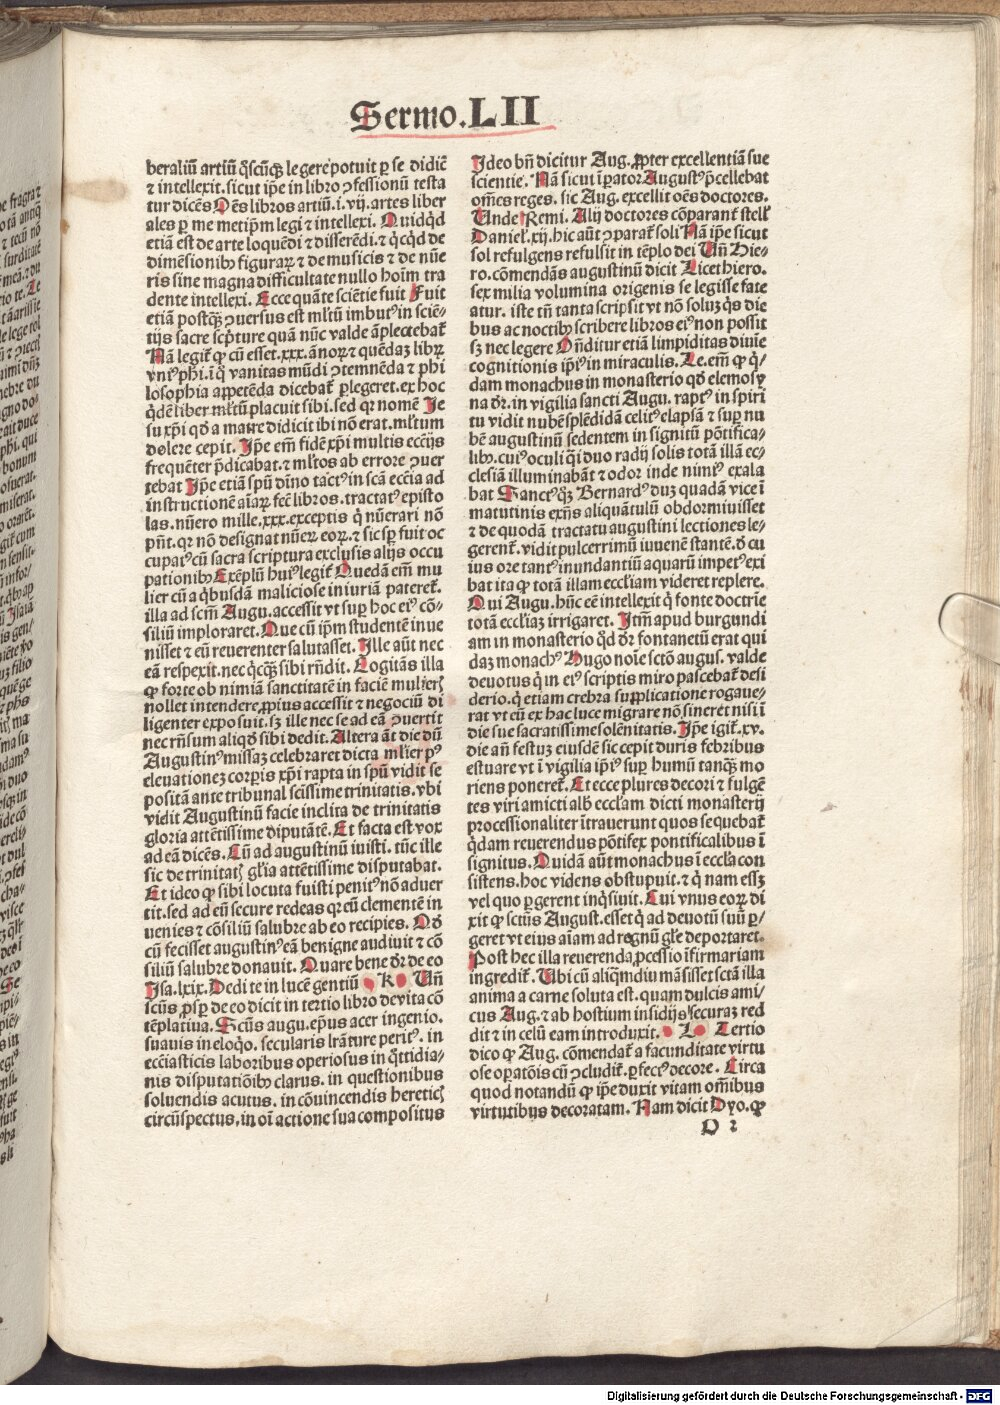 Sermo.LII
beraliū artiū q̄scūqꝫ legere potuit ꝑ se didiē
ꝛ intellexit. sicut ip̄e in libro ꝯfessionū testa
tur dicēs Oēs libros artiū. i. vij. artes liber
ales ꝑ me metip̄m legi ꝛ intellexi. Quidq̇d
etiā est de arte loquēdi ꝛ disserēdi. ꝛ q̇cq̇d de
dimēsionibꝰ figuraꝝ ꝛ de musicis ꝛ de nūe
ris sine magna difficultate nullo hoīm tra
dente intellexi. Ecce quāte sciētie fuit Fuit
etiā postqꝫ ꝯuersus est ml̄tū imbutꝰ in sciē-
tijs sacre scp̄ture quā nūc valde āplectebat̄
Nā legit̄ ꝙ cū esset .xxx. ānoꝝ ꝛ quēdaꝫ libꝝ
vniꝰ phi. ī q̇ vanitas mūdi ꝯtemnēda ꝛ phi
losophia appetēda dicebat̄ ꝑlegeret. ex hoc
q̇dē liber ml̄tū placuit sibi. sed qꝛ nomē Je
su xp̄i qd̄ a matre didicit ibi nō erat. ml̄tum
dolere cepit. Ip̄e em̄ fidē xp̄i multis ecc̄ijs
frequēter p̄dicabat. ꝛ ml̄tos ab errore ꝯuer
tebat Ip̄e etiā spū dīno tactꝰ in scā ecc̄ia ad
instructionē aīaꝝ fec̄ libros. tractatꝰ episto
las. nūero mille. xxx. exceptis q̇ nūerari nō
pn̄t. qꝛ nō designat nūeꝝ eoꝝ. ꝛ sic sꝑ fuit oc
cupatꝰ cū sacra scriptura exclusis alijs occu
pationibꝰ Exēplū huiꝰ legit̄ Quedā em̄ mu
lier cū a q̇busdā maliciose iniuriā pateret̄.
illa ad scm̄ Augu. accessit vt suꝑ hoc eiꝰ cō-
siliū imploraret. Que cū ip̄m studentē inue
nisset ꝛ eū reuerenter salutasset. Ille aūt nec
eā respexit. nec q̇cqꝫ sibi rn̄dit. Cogitās illa
ꝙ forte ob nimiā sanctitatē in faciē mulier̄
nollet intendere. ꝓpius accessit ꝛ negociū di
ligenter exposuit. sꝫ ille nec se ad eā ꝯuertit
nec rn̄sum aliqd̄ sibi dedit. Altera āt die dū
Augustinꝰ missaꝫ celebraret dicta ml̄ier pꝰ
eleuationeꝫ corꝑis xp̄i rapta in spū vidit se
positā ante tribunal scissime trinitatis. vbi
vidit Augustinū facie inclita de trinitatis
gloria attētissime diputātē. Et facta est vox
ad eā dicēs. Cū ad augustinū iuisti. tūc ille
sic de trinitatꝭ gl̄ia attētissime disputabat.
Et ideo ꝙ sibi locuta fuisti penitꝰ nō aduer
tit. sed ad eū secure redeas qꝛ eū clementē in
uenies ꝛ cōsiliū salubre ab eo recipies. Qd̄
cū fecisset augustinꝰ eā benigne audiuit ꝛ cō
siliū salubre donauit. Quare bene dr̄ de eo
Isa. lxix. Dedi te in lucē gentiū • K • Un̄
scūs ꝓsꝑ de eo dicit in tertio libro de vita cō
tēplatiua. Scūs augu. ep̄us acer ingenio.
suauis in eloq̇o. secularis lr̄ature peritꝰ. in
ecc̄iasticis laboribus operiosus in q̇ttidia-
nis disputatiōibꝰ clarus. in questionibus
soluendis acutus. in cōuincendis hereticꝭ
circūspectus, in oī actione sua compositus
Ideo bn̄ dicitur Aug. ꝓpter excellentiā sue
scientie. Nā sicut īꝑator Augustꝰ p̄cellebat
om̄es reges. sic Aug. excellit oēs doctores.
Unde Remi. Alij doctores cōparant̄ stell̄
Daniel̄. xij. hic aūt ꝯparat̄ soli Nā ip̄e sicut
sol refulgens refulsit in tēplo dei Un̄ Hie-
ro. cōmendās augustinū dicit Licet hiero.
sex milia volumina origenis se legisse fate
atur. iste tn̄ tanta scripsit vt nō soluꝫ q̇s die
bus ac noctibꝰ scribere libros eiꝰ non possit
sꝫ nec legere Ōnditur etiā limpiditas diuīe
cognitionis ip̄iꝰ in miraculis. Le. em̄ ꝙ q̇-
dam monachus in monasterio qd̄ elemosy
na dr̄. in vigilia sancti Augu. raptꝰ in spiri
tu vidit nubē splēdidā celitꝰ elapsā ꝛ suꝑ nu
bē augustinū sedentem in signitū pōtifica-
libꝰ. cuiꝰ oculi q̇i duo radij solis totā illā ec
clesiā illuminabāt ꝛ odor inde nimiꝰ exala
bat Sanctꝰ q̇ꝫ Bernardꝰ duꝫ quadā vice ī
matutinis exn̄s aliquātulū obdormiuisset
ꝛ de quodā tractatu augustini lectiones le-
gerent̄. vidit pulcerrimū iuuenē stantē. d̄ cu
ius ore tantꝰ inundantiū aquarū impetꝰ exi
bat ita ꝙ totā illam eccl̄iam videret replere.
Qui Augu. hūc eē intellexit q̇ fonte doctrīe
totā eccl̄iaꝫ irrigaret. Itm̄ apud burgundi
am in monasterio q̇d dr̄ fontanetū erat qui
daꝫ monachꝰ Hugo noīe sctō augus. valde
deuotus q̇ in eiꝰ scriptis miro pascebat̄ desi
derio. q̇ etiam crebra supplicatione rogaue-
rat vt eū ex hac luce migrare nō sineret nisi ī
die sue sacratissime solēnitatis. Ip̄e igit̄. xv.
die an̄ festuꝫ eiusdē sic cepit duris febribus
estuare vt ī vigilia ip̄iꝰ suꝑ humū tanqꝫ mo
riens poneret̄. Et ecce plures decori ꝛ fulgē
tes viri amicti alb̄ eccl̄am dicti monasterij
processionaliter ītrauerunt quos sequebat̄
q̇dam reuerendus pōtifex pontificalibus ī
signitus. Quidā aūt monachus ī eccl̄ia con
sistens. hoc videns obstupuit. ꝛ q̇ nam essꝫ
vel quo ꝑgerent inq̇siuit. Cui vnus eoꝝ di
xit ꝙ sctūs August. esset q̇ ad deuotū suū ꝑ-
geret vt eius aīam ad regnū gl̄e deportaret.
Post hec illa reuerenda ꝓcessio īfirmariam
ingredit̄. Ubi cū aliq̄mdiu māsisset sctā illa
anima a carne soluta est. quam dulcis ami/
cus Aug. ꝛ ab hostium insidijs securaꝫ red
dit ꝛ in celū eam introduxit. • L • Tertio
dico ꝙ Aug. cōmendat̄ a facunditate virtu
ose oꝑatōis cū ꝯcludit̄. ꝑfectꝰ decore. Circa
quod notandū ꝙ ip̄e duxit vitam om̄ibus
virtutibus decoratam. Nam dicit Dyo. ꝙ
O 2
Digitalisierung gefördert durch die Deutsche Forschungsgemeinschaft - DFG